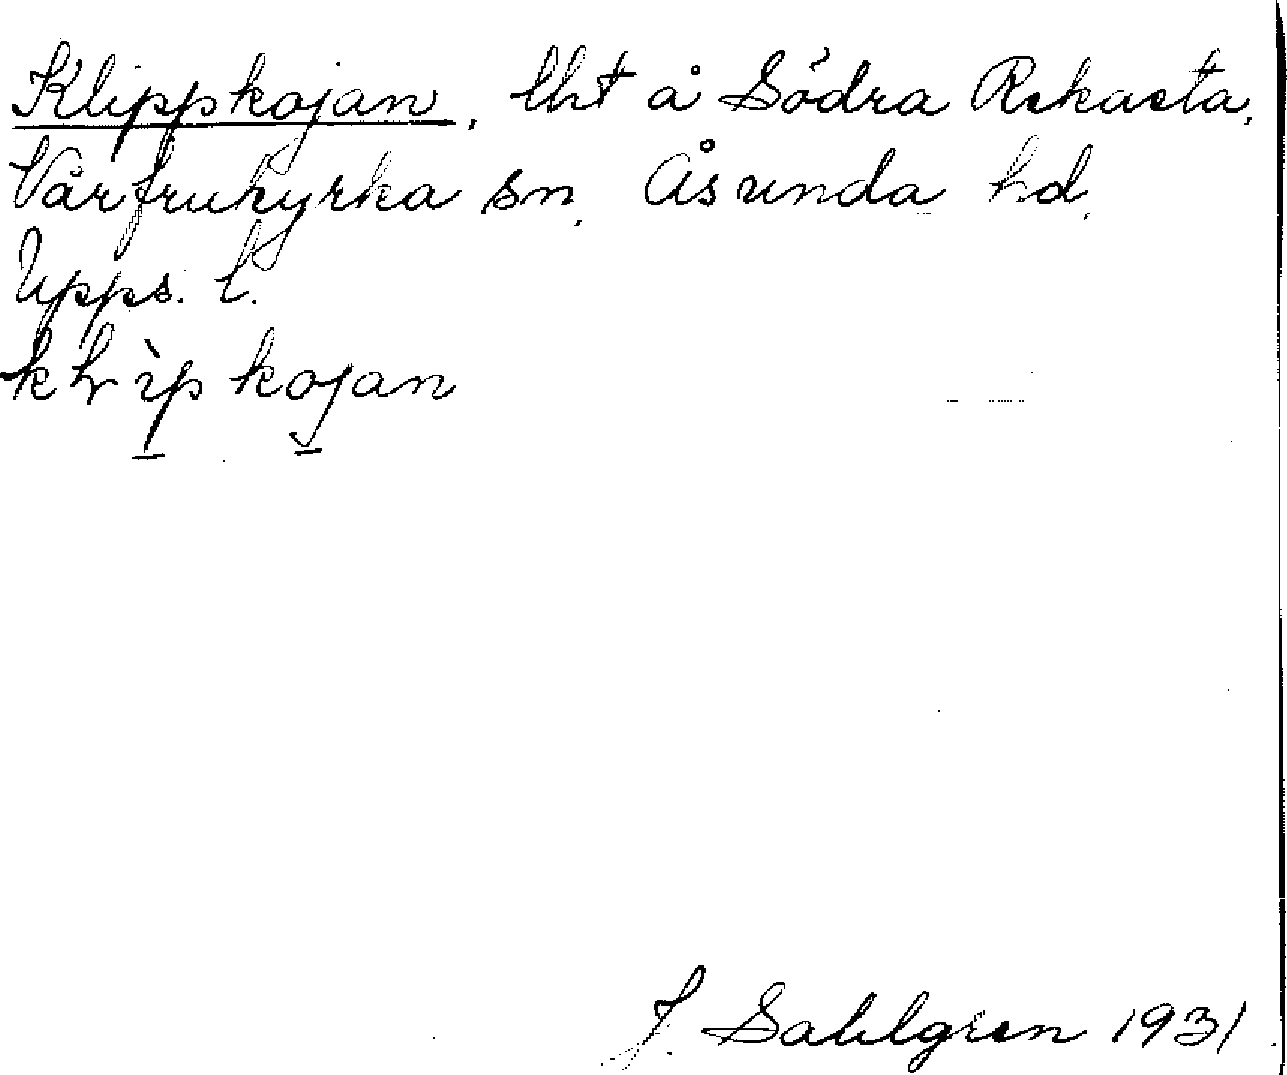 Klippkojan, lht å Södra Rekasta,
Vårfrukyrka sn, Åsunda hd,
Upps. l.
kojan
J. Sahlgren 1931